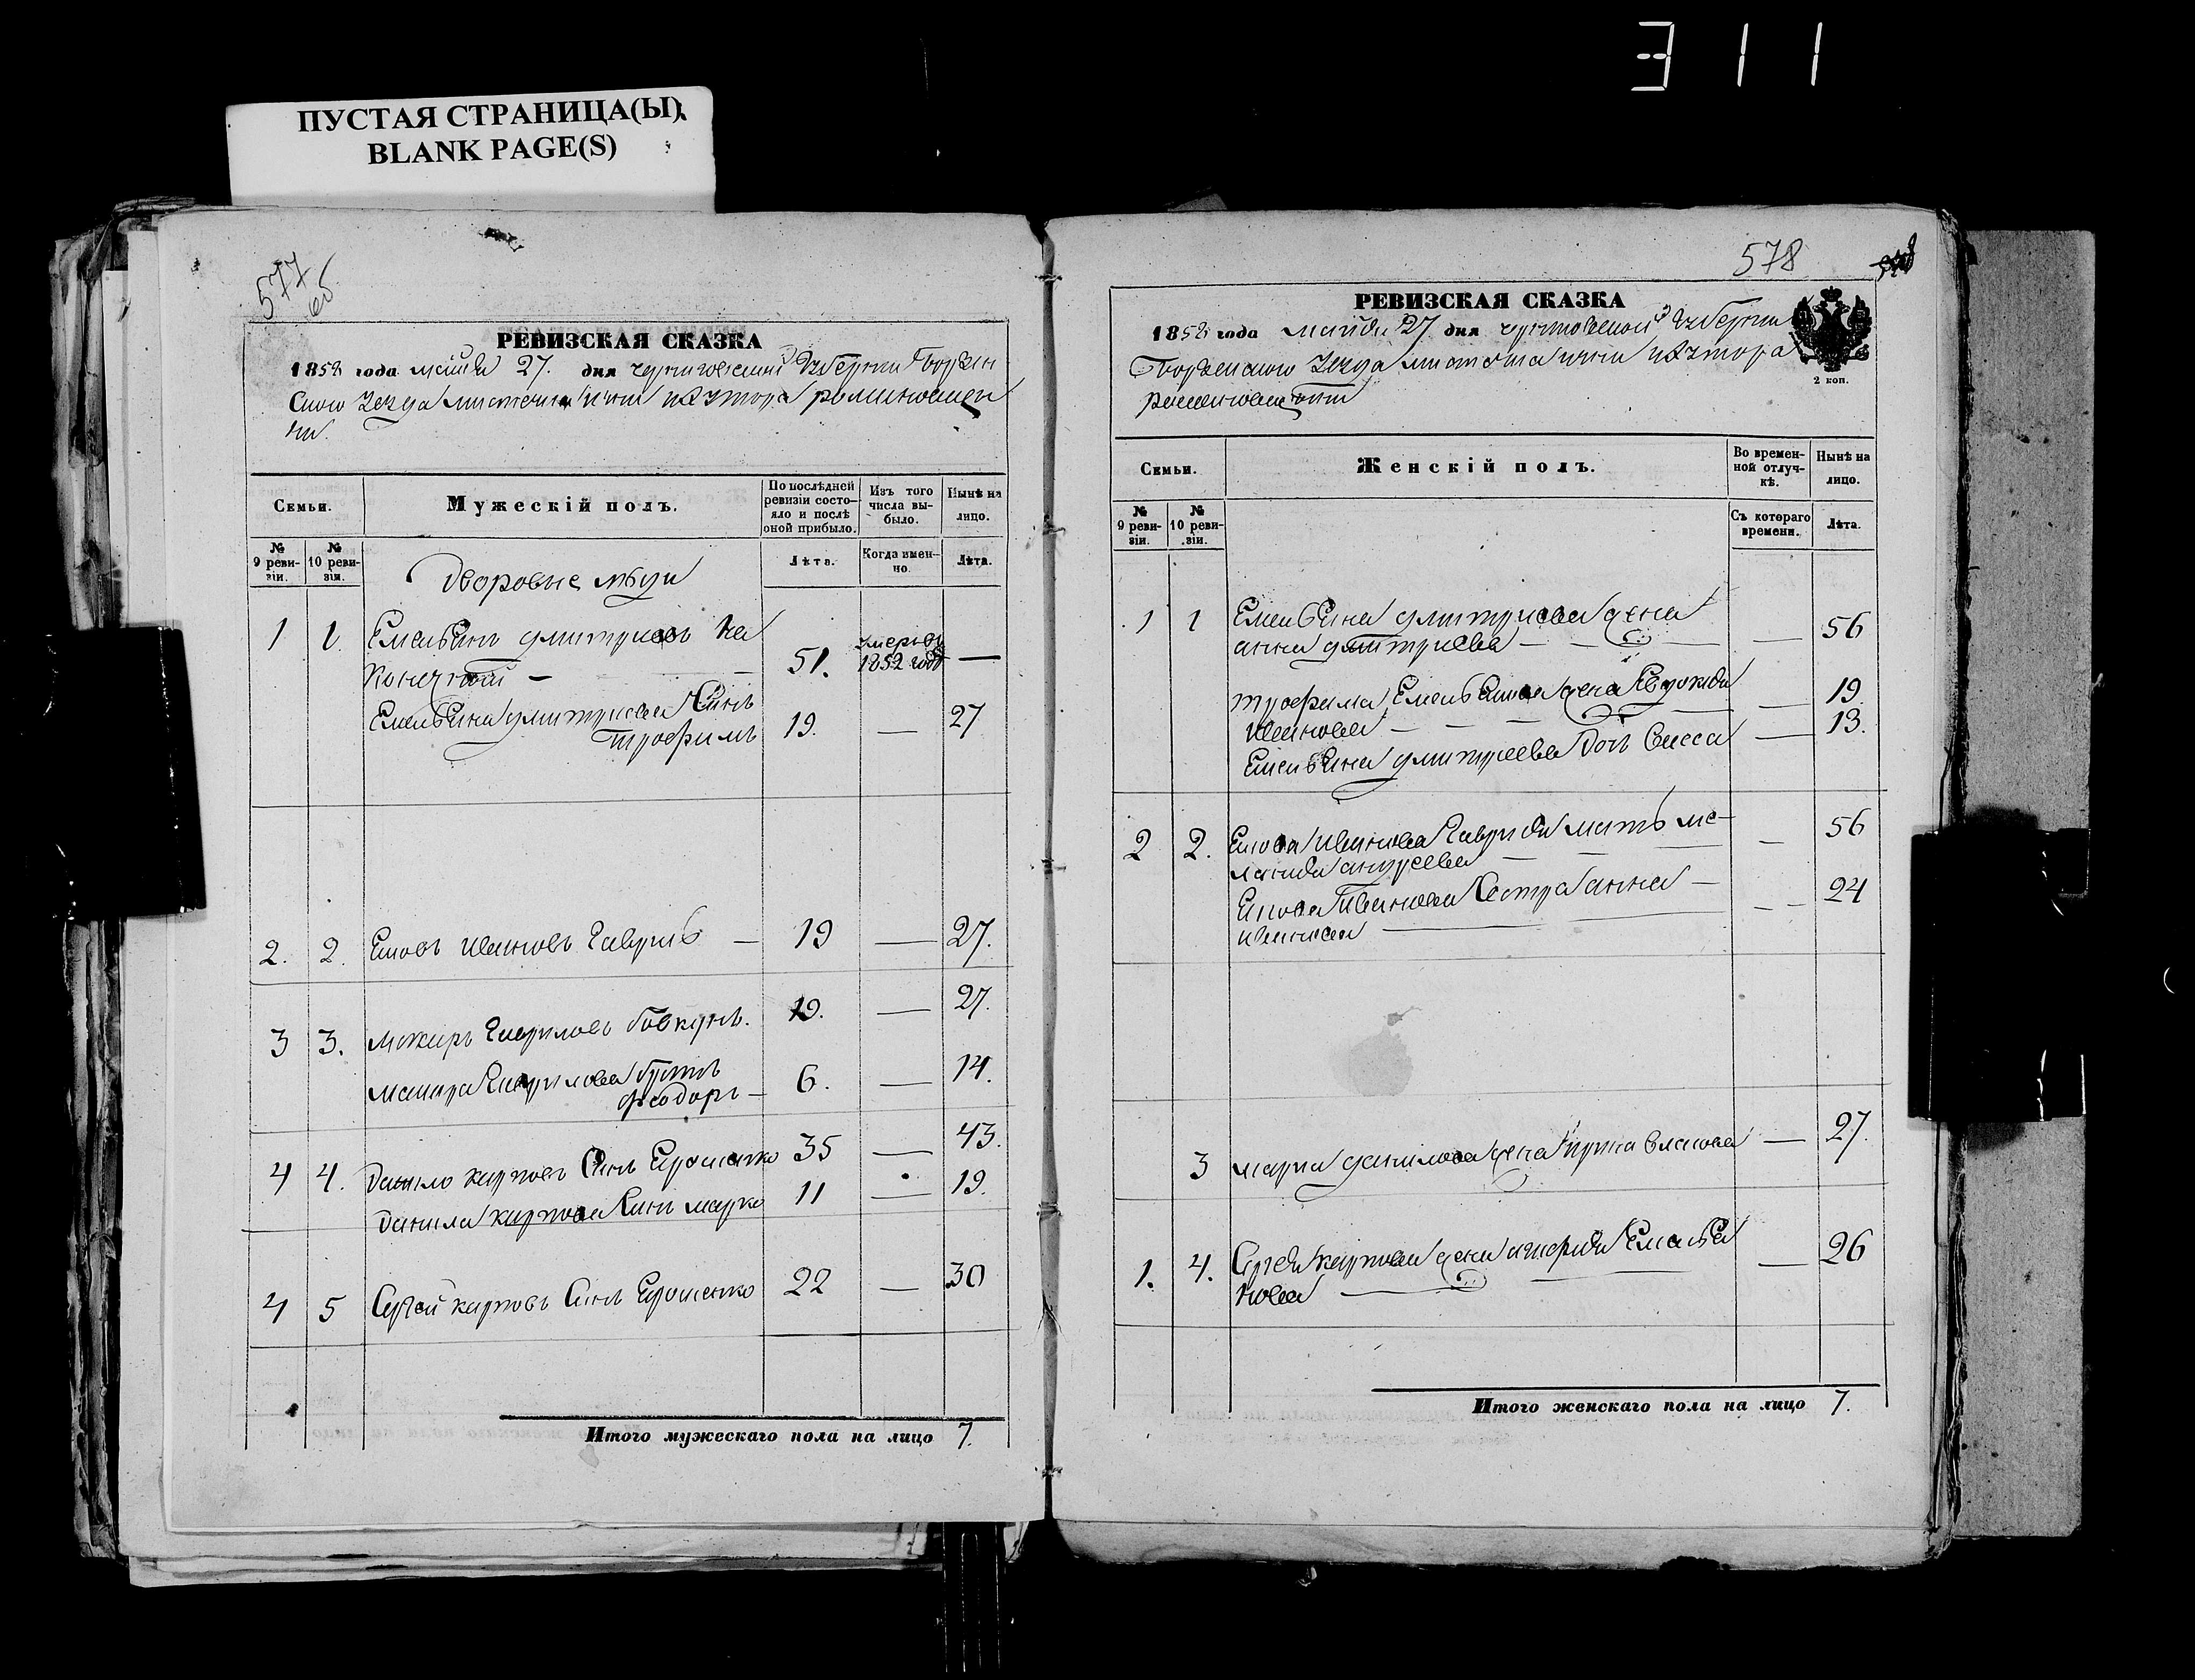 311
ПУСТАЯ СТРАНИЦА(Ы)
BLANK PAGE(S)
577
об
РЕВИЗСКАЯ СКАЗКА
1858 года маія 27. дня черниговской Губерніи Борзен
ского уезда хутора
Семьи.
Мужескій полъ.
По послѣдней ревизіи состояло и послѣ оной прибыло.
Изъ того числа выбыло.
Нынѣ на лицо.
№ 9 ревизіи.
№ 10 ревизіи.
Лѣта.
Когда именно.
Лѣта.
Дворовые люди
1 1 Емельянъ дмитриевъ
51. умеръ 1852 года —
Емельяна дмитриева Синъ
трофимъ 19. — 27
2. 2 Ивановъ Гавриль — 19 — 27.
3 3. Гавриловъ 19. — 27.
Гаврилова братъ
феодоръ — 6. — 14.
4 4. данило карповъ Синъ Ерошенко 35 — 43.
данила карпова Синъ марко 11 — 19.
4 5 Сергей карповъ Синъ Ерошенко 22 — 30
Итого мужескаго пола на лицо 7.
578
РЕВИЗСКАЯ СКАЗКА
1858 года маія 27. дня черниговской Губерніи
Борзенского уезда хутора
2 коп.
Семьи.
Женскій полъ.
Во временной отлучкѣ.
Нынѣ на лицо.
№ 9 ревизіи.
№ 10 ревизіи.
Съ котораго времени.
Лѣта.
1 1 Емельяна дмитриева жена
анна дмитриева — — — 56
трофима Емельянова жена Евдокия — 19
иванова —
Емельяна дмитриева Дочь — 13.
2 2. Иванова Гавриила мать ме-
лания андреева — — 56
Иванова Сестра анна — 24
иванова —
3 марка данилова жена ирина — 27.
1. 4. Сергея карпова жена Емелья
нова — 26
Итого женскаго пола на лицо 7.